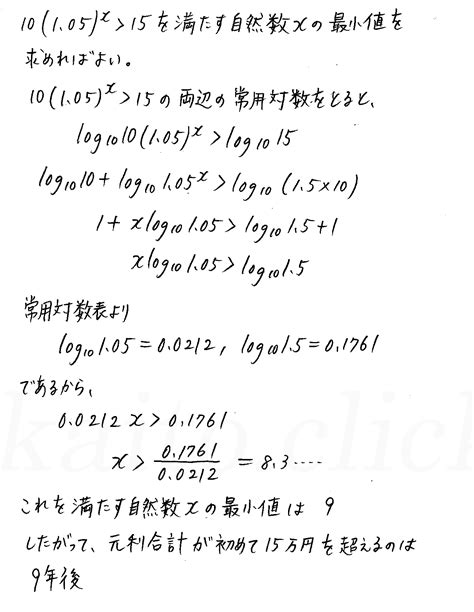 10(1.05)^x > 15 を満たす自然数 x の最小値を
求めればよい。
10(1.05)^x > 15 の両辺の常用対数をとると、
log₁₀10(1.05)^x > log₁₀15
log₁₀10 + log₁₀1.05^x > log₁₀(1.5×10)
1 + xlog₁₀1.05 > log₁₀1.5 + 1
xlog₁₀1.05 > log₁₀1.5
常用対数表より
log₁₀1.05 = 0.0212, log₁₀1.5 = 0.1761
であるから、
0.0212x > 0.1761
x > 0.1761/0.0212 = 8.3....
これを満たす自然数 x の最小値は 9
したがって、元利合計が初めて15万円を超えるのは
9年後
kaito click